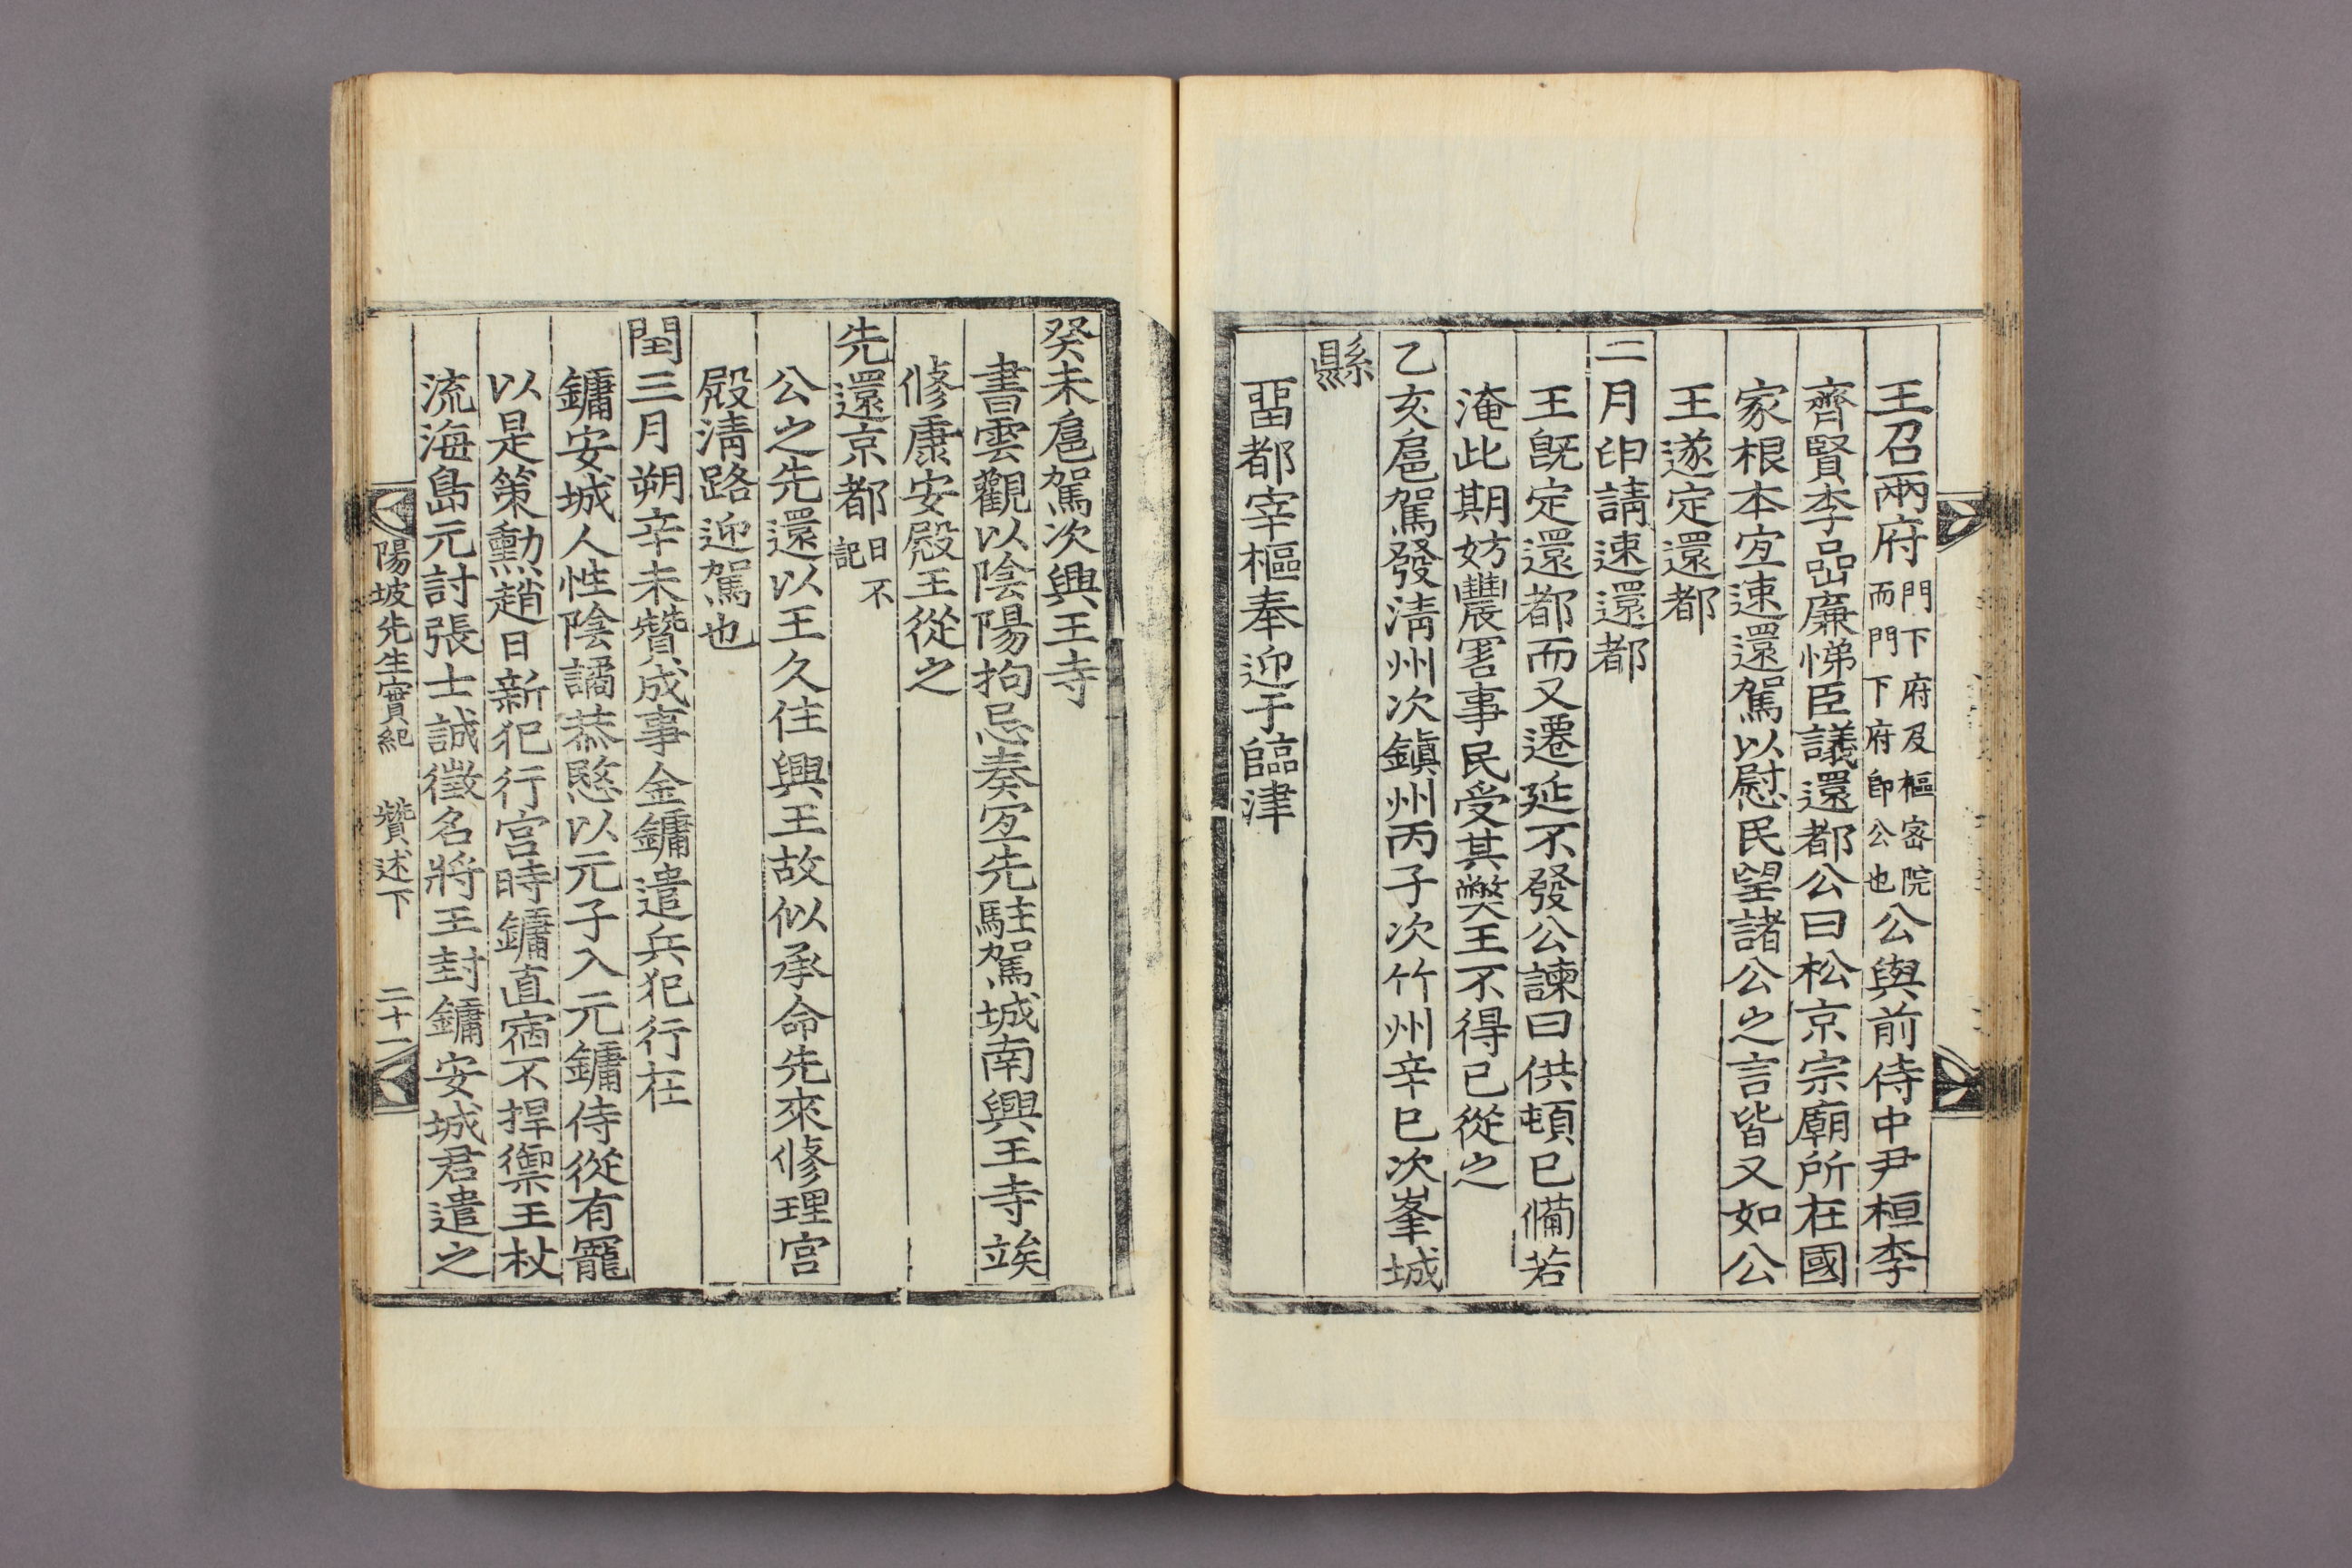 王召兩府門下府及樞密院而門下府卽公也公與前侍中尹桓李
齊賢李嵒廉悌臣議還都公曰松京宗廟所在國
家根本宜速還駕以慰民望諸公之言皆又如公
王遂定還都
二月印請速還都
王旣定還都而又遷延不發公諫曰供頓已備若
淹此期妨農害事民受其弊王不得已從之
乙亥扈駕發淸州次鎭州丙子次竹州辛巳次峯城
縣
畱都宰樞奉迎于臨津
癸未扈駕次興王寺
書雲觀以陰陽拘忌奏宜先駐駕城南興王寺竢
修康安殿王從之
先還京都日不記
公之先還以王久住興王故似承命先來修理宮
殿淸路迎駕也
閏三月朔辛未贊成事金鏞遣兵犯行在
鏞安城人性陰譎恭愍以元子入元鏞侍從有寵
以是策勳趙日新犯行宮時鏞直宿不捍禦王杖
流海島元討張士誠徵名將王封鏞安城君遣之
陽坡先生實紀 贊述下 二十二